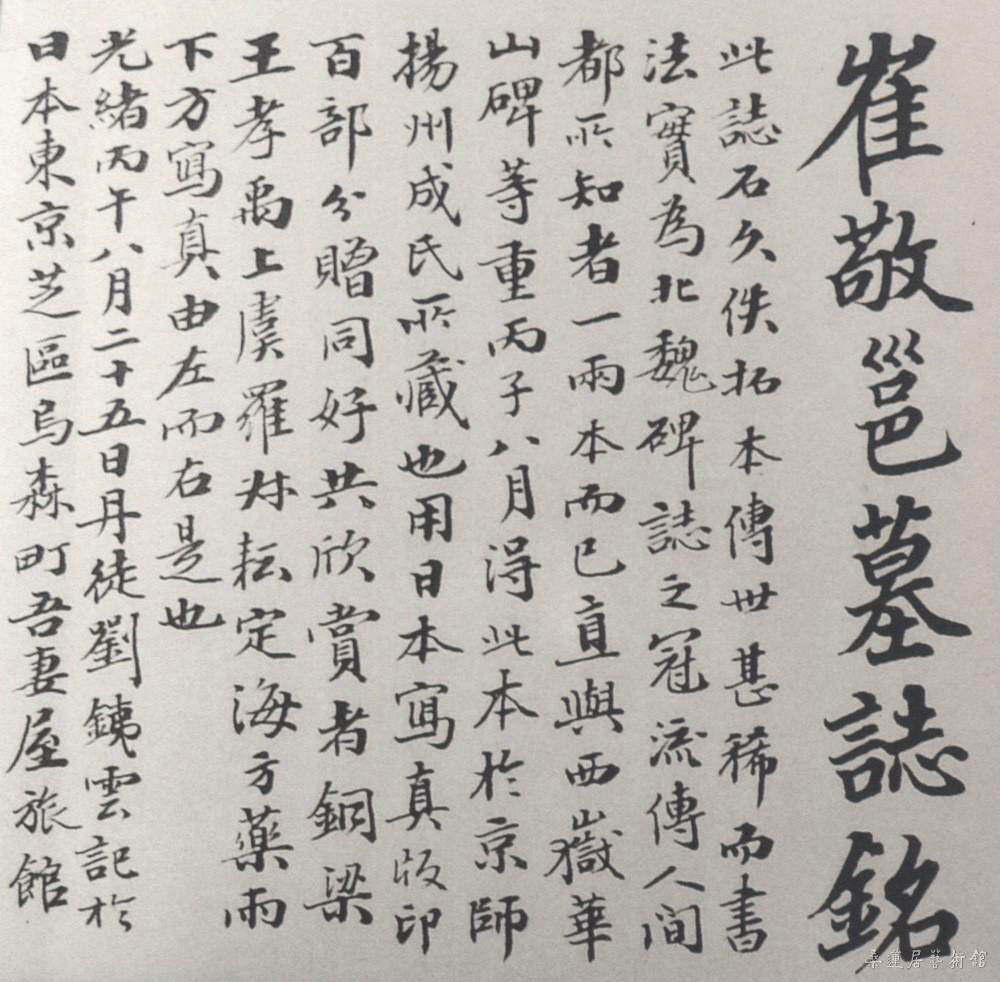 崔敬邕墓誌銘
此誌石久佚拓本傳世甚稀而書
法實為北魏碑誌之冠流傳人間
都所知者一兩本而已直與西嶽華
山碑等重丙子八月得此本於京師
揚州成氏所藏也用日本寫真版印
百部分贈同好共欣賞者銅梁
王孝禹上虞羅尗耘定海方藥雨
下方寫真由左而右是也
光緒丙午八月二十五日丹徒劉銕雲記於
日本東京芝區烏森町吾妻屋旅館
桑蓮居藝術館